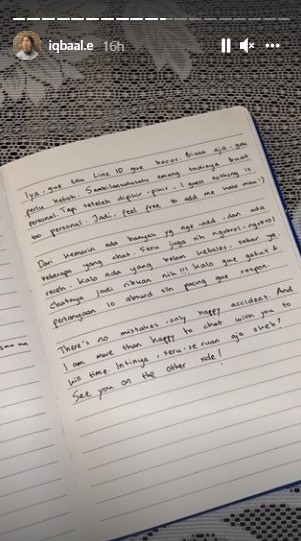 iqbaal.e 16h
Iya, gue tau Line ID gue bocor. Biasa aja, gau
perlu heboh. Sembilansatusatu emang tadinya buat
personal. Tapi setelah dipikir-pikir, I guess nothing is
too personal. Jadi, feel free to add me kalo mau :)
Dari kemarin ada banyak yg nge-add, dan ada
beberapa yang chat. Seru juga sih ngobrol-ngobrol
receh. Kalo ada yang belom kebales, sabar ya.
Chatnya jadi ribuan nih!!! Kalo gue gabut &
pertanyaan lo absurd sih paling gue respon.
There's no mistakes, only happy accident. And
I am more than happy to chat with you to
kill time. Intinya, seru-seruan aja okeh?
See you on the other side!